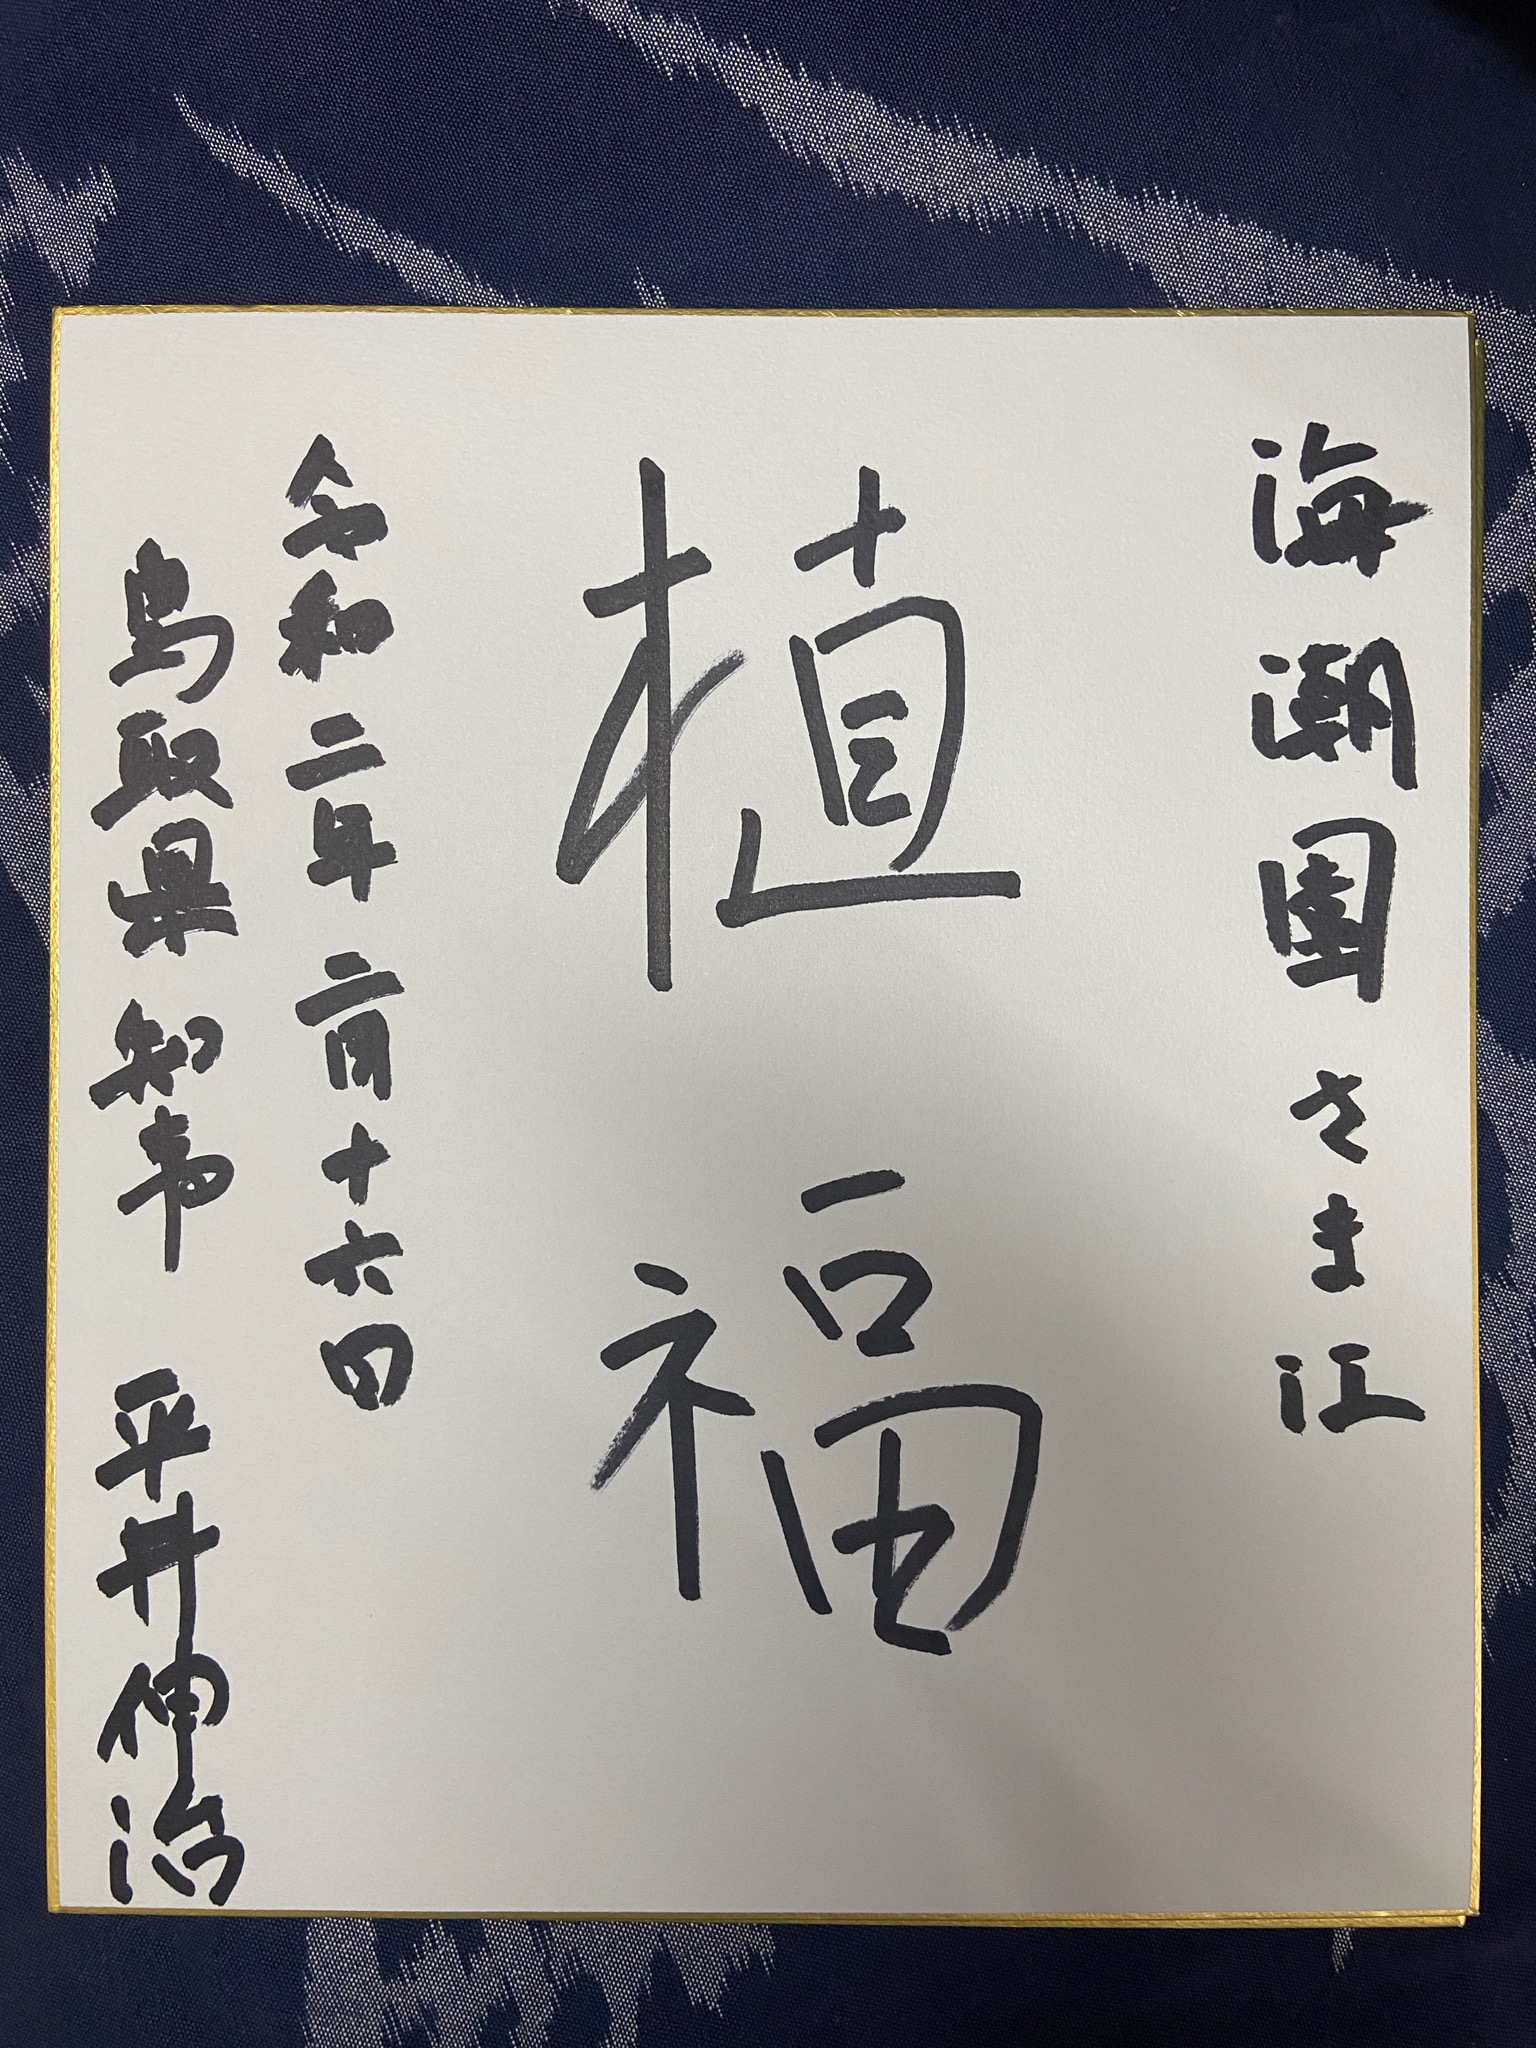 海潮園さま江
植福
令和二年二月十六日
鳥取県知事 平井伸治